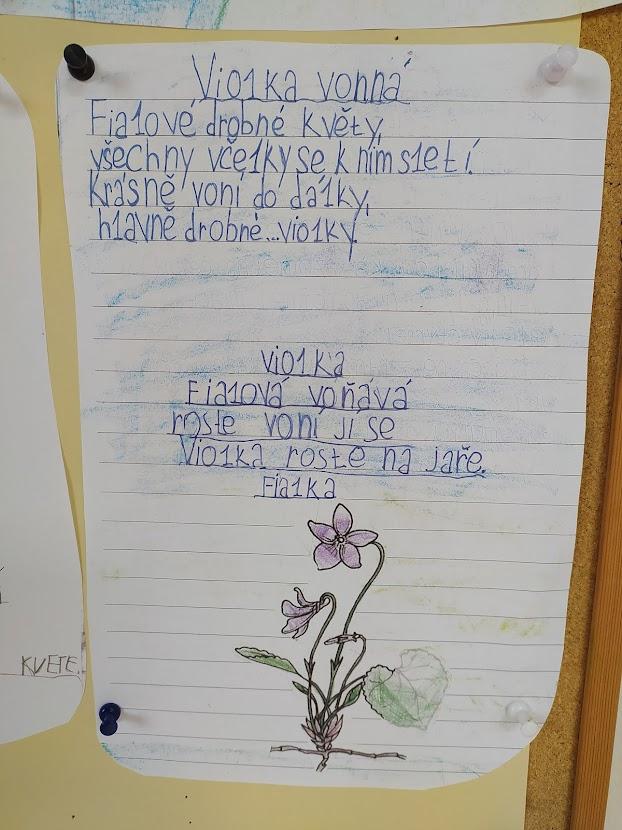 Violka vonná
Fialové drobné květy,
všechny včelky se k ním sletí.
Krásně voní do dálky,
hlavně drobné...violky.
Violka
Fialová voňavá
roste voní jí se
Violka roste na jaře.
Fialka
KVETE.